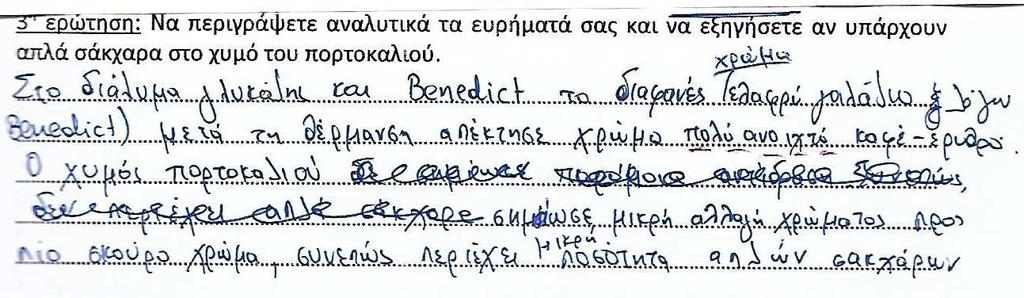 3η ερώτηση: Να περιγράψετε αναλυτικά τα ευρήματά σας και να εξηγήσετε αν υπάρχουν
απλά σάκχαρα στο χυμό του πορτοκαλιού.
χρώμα
Στο διάλυμα γλυκόζης και Benedict το διαφανές (ελαφρύ γαλάζιο λόγω
Benedict) μετά τη θέρμανση απέκτησε χρώμα πολύ ανοιχτό καφέ-έρυθρο.
Ο χυμός πορτοκαλιού δεν παρόμοια αντίδραση Συνεπώς,
δεν περιέχει απλά σάκχαρα σημείωσε, μικρή αλλαγή χρώματος προς
πιο σκούρο χρώμα, συνεπώς περιέχει μικρή ποσότητα απλών σακχάρων